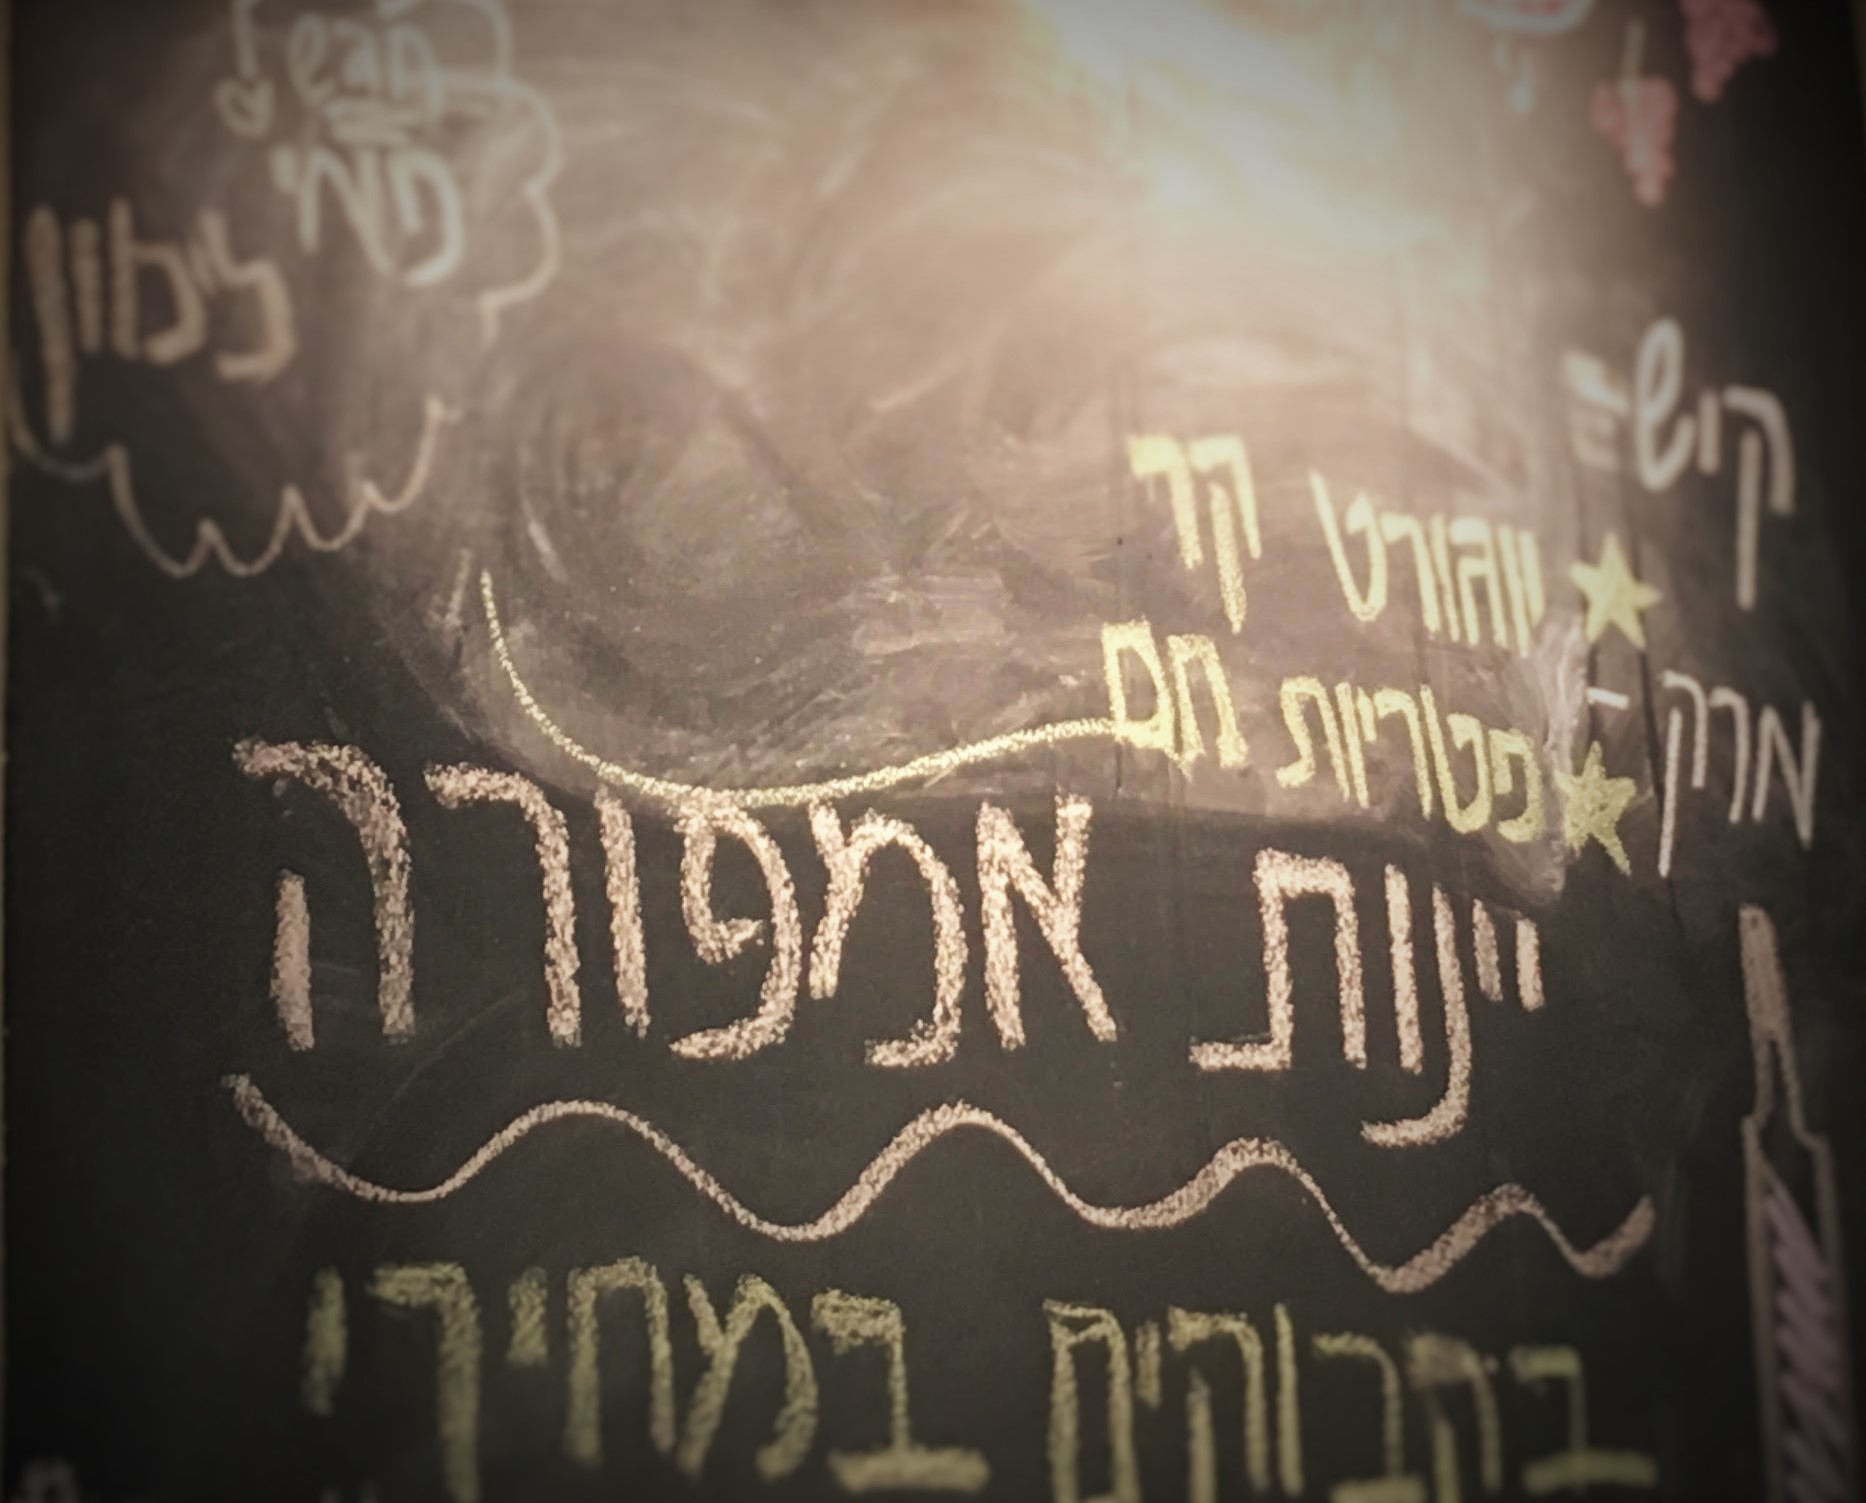 פאי
לימון
קיש -
יוגורט קר
מרק -
פטריות חם
יינות אמפורה
בבקבוקים במחירי